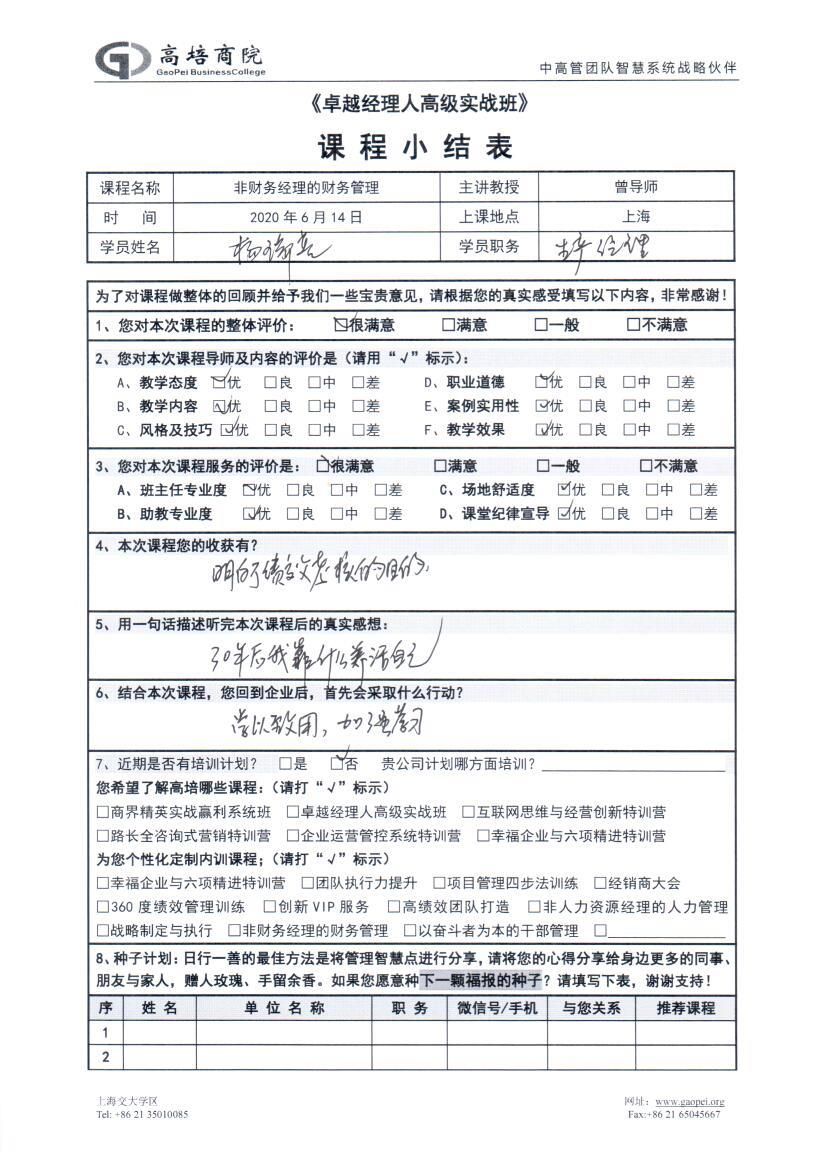 高培商院
GaoPei BusinessCollege
中高管团队智慧系统战略伙伴
《卓越经理人高级实战班》
课程小结表
课程名称 非财务经理的财务管理 主讲教授 曾导师
时 间 2020年6月14日 上课地点 上海
学员姓名 学员职务 经理
为了对课程做整体的回顾并给予我们一些宝贵意见，请根据您的真实感受填写以下内容，非常感谢！
1、您对本次课程的整体评价： ☑很满意 □满意 □一般 □不满意
2、您对本次课程导师及内容的评价是（请用“√”标示）：
A、教学态度 ☑优 □良 □中 □差 D、职业道德 ☑优 □良 □中 □差
B、教学内容 ☑优 □良 □中 □差 E、案例实用性 ☑优 □良 □中 □差
C、风格及技巧 ☑优 □良 □中 □差 F、教学效果 ☑优 □良 □中 □差
3、您对本次课程服务的评价是： ☑很满意 □满意 □一般 □不满意
A、班主任专业度 ☑优 □良 □中 □差 C、场地舒适度 ☑优 □良 □中 □差
B、助教专业度 ☑优 □良 □中 □差 D、课堂纪律宣导 ☑优 □良 □中 □差
4、本次课程您的收获有？
明白了绩效考核的目的.
5、用一句话描述听完本次课程后的真实感想：
30年后我靠什么养活自己
6、结合本次课程，您回到企业后，首先会采取什么行动？
学以致用，加强学习
7、近期是否有培训计划？ □是 ☑否 贵公司计划哪方面培训？
您希望了解高培哪些课程：（请打“√”标示）
□商界精英实战赢利系统班 □卓越经理人高级实战班 □互联网思维与经营创新特训营
□路长全咨询式营销特训营 □企业运营管控系统特训营 □幸福企业与六项精进特训营
为您个性化定制内训课程；（请打“√”标示）
□幸福企业与六项精进特训营 □团队执行力提升 □项目管理四步法训练 □经销商大会
□360度绩效管理训练 □创新VIP服务 □高绩效团队打造 □非人力资源经理的人力管理
□战略制定与执行 □非财务经理的财务管理 □以奋斗者为本的干部管理 □
8、种子计划：日行一善的最佳方法是将管理智慧点进行分享，请将您的心得分享给身边更多的同事、
朋友与家人，赠人玫瑰、手留余香。如果您愿意种下一颗福报的种子？请填写下表，谢谢支持！
序 姓名 单位名称 职务 微信号/手机 与您关系 推荐课程
1
2
上海交大学区 网址：www.gaopei.org
Tel: +86 21 35010085 Fax:+86 21 65045667